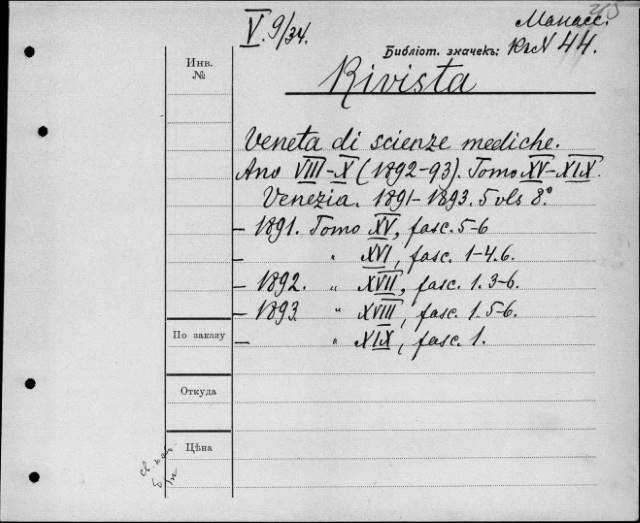 V. 9/34.
Манасс.
Библіот. значекъ: № 44.
Инв.
№
Rivista
Veneta di scienze mediche.
Ano VIII-X (1892-93). Tomo XV-XIX.
Venezia. 1891-1893. 5 vls 8°
- 1891. Tomo XV, fasc. 5-6
- " XVI, fasc. 1-4.6.
- 1892. " XVII, fasc. 1.3-6.
- 1893 " XVIII, fasc. 1.5-6.
- " XIX, fasc. 1.
По заказу
Откуда
Цѣна